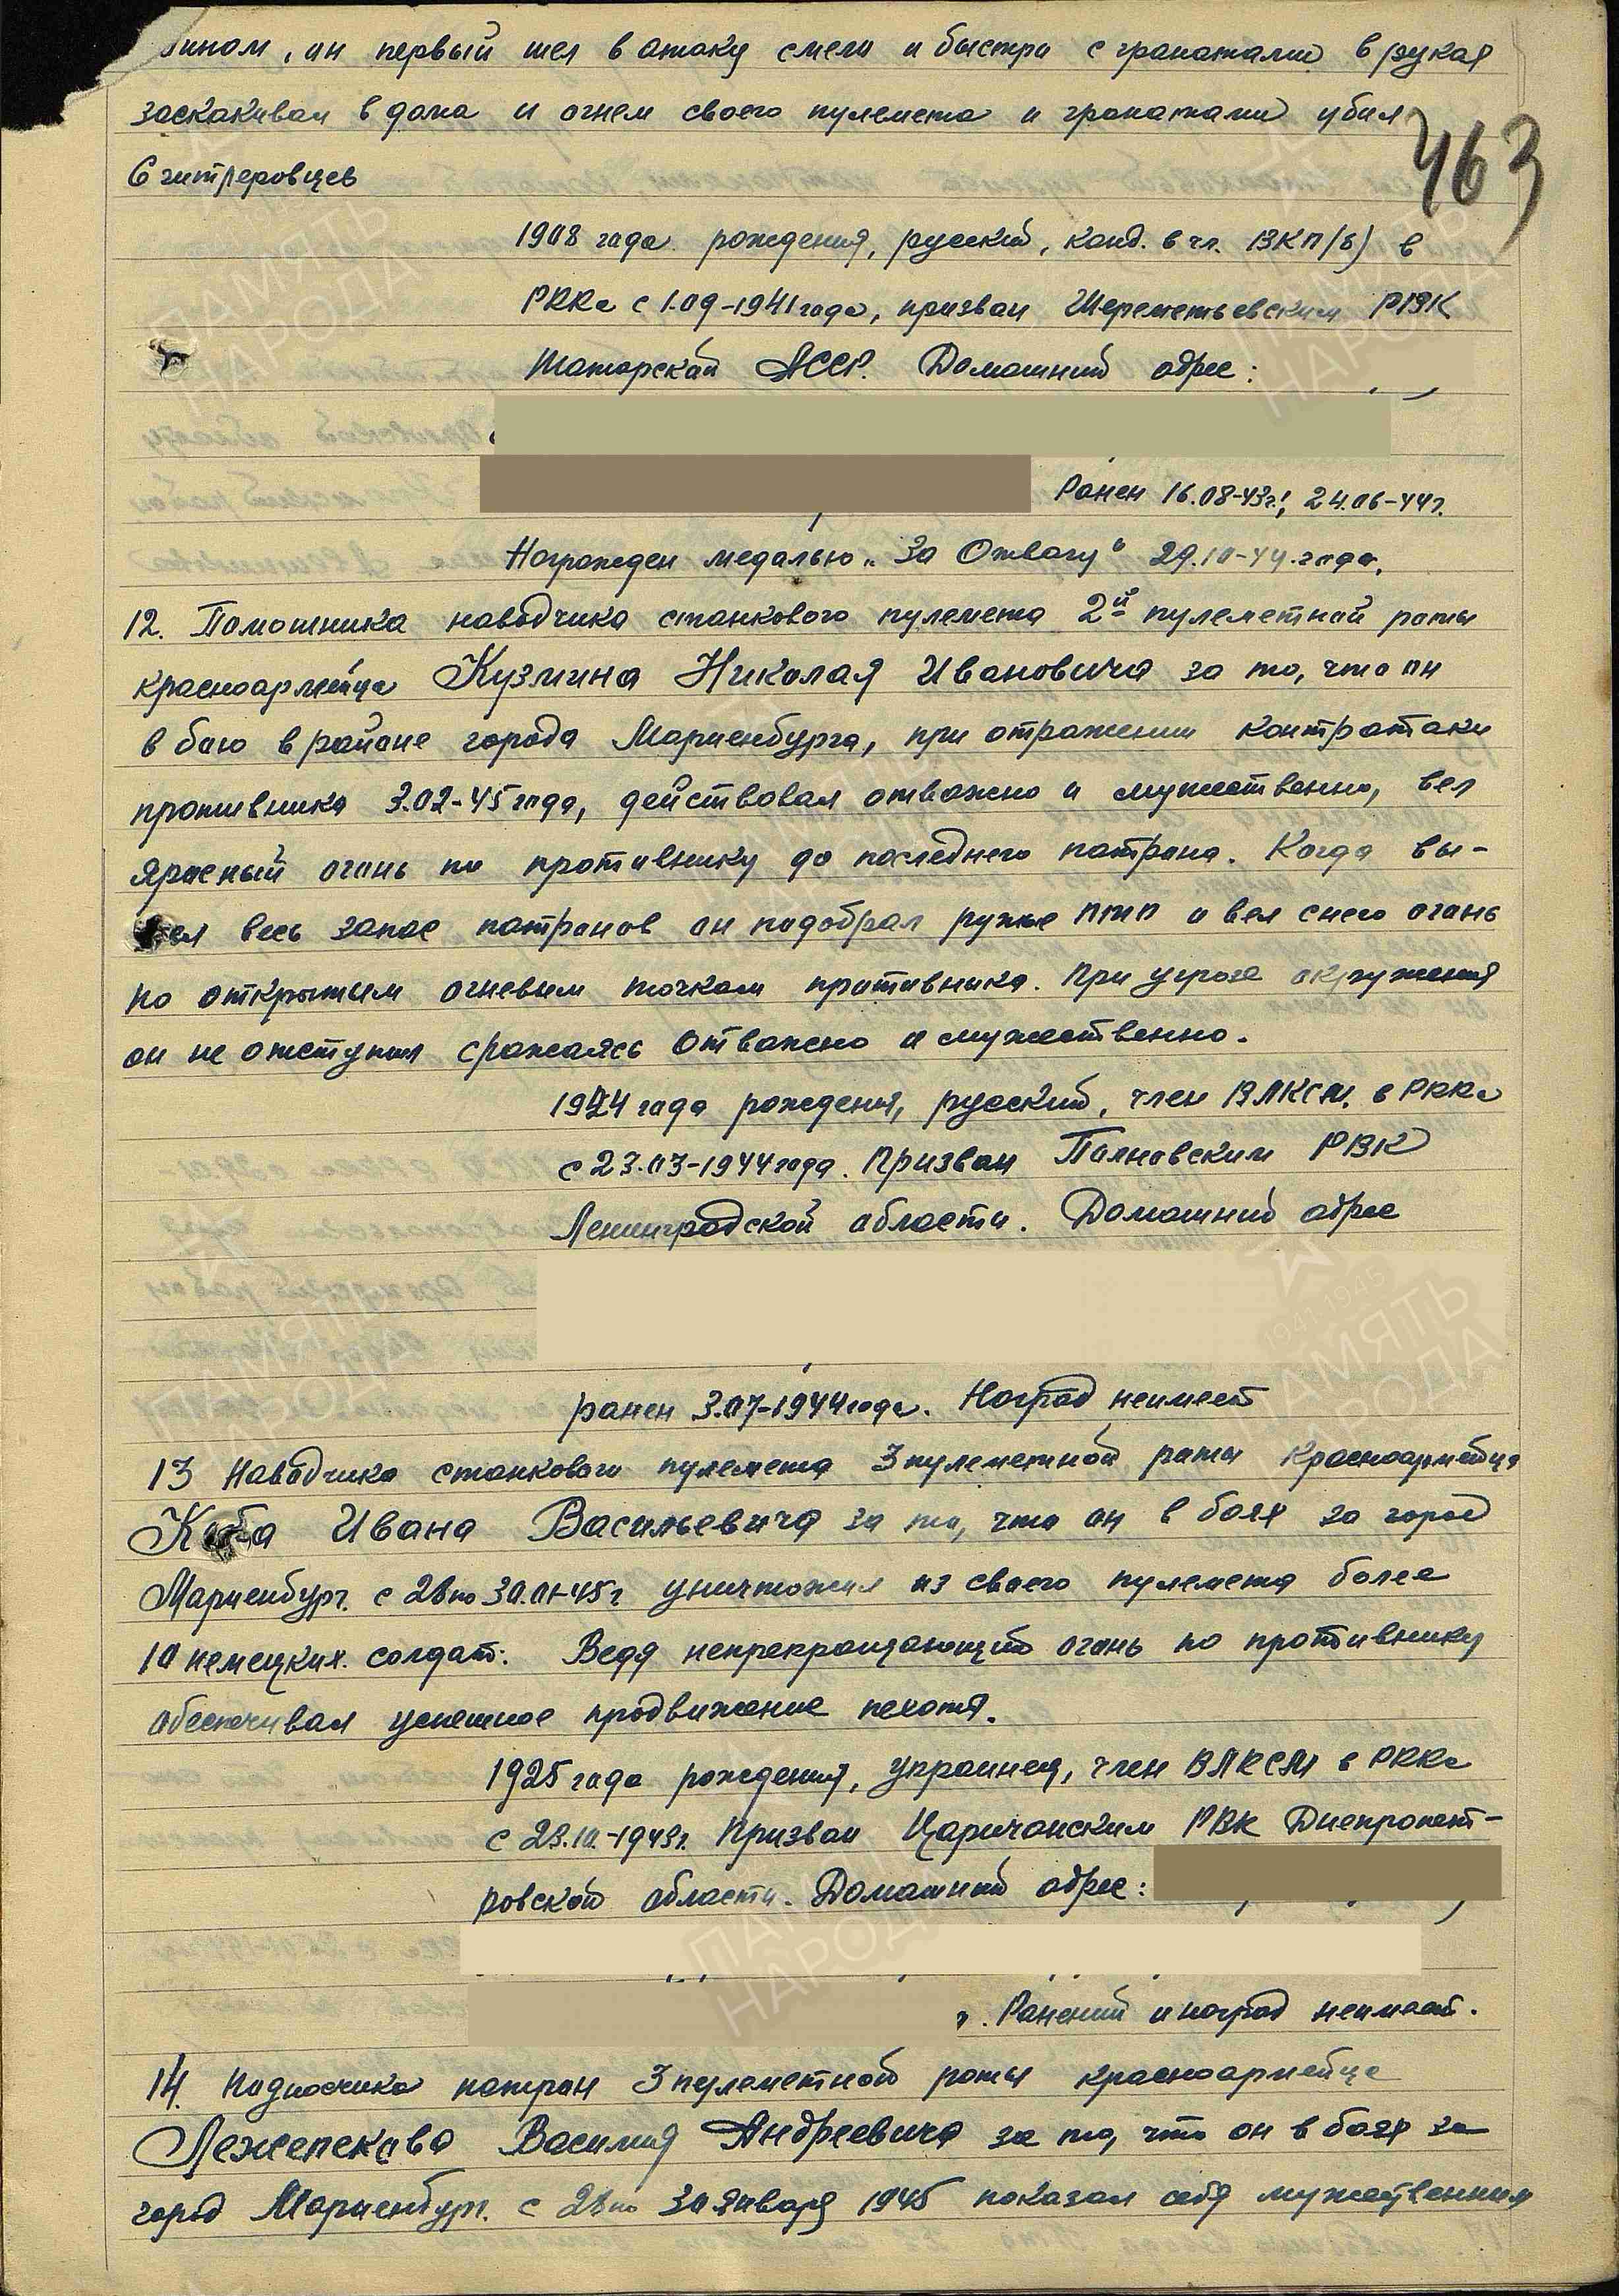 он первый шел в атаку смело и быстро с гранатами в руках
заскакивал в дома и огнем своего пулемета и гранатами убил
463
6 гитлеровцев
1908 года рождения, русский, канд. в чл. ВКП/б) в
РККа с 1.09-1941 года, призван Шереметьевским РВК
Татарской АССР. Домашний адрес:
Ранен 16.08-43г.; 24.06-44г.
Награжден медалью „За Отвагу" 29.10-44.года.
12. Памошника наводчика станкового пулемета 2й пулеметной роты
красноармейца Кузмина Николая Ивановича за то, что он
в бою в районе города Мариенбурга, при отражении контратаки
противника 3.02-45 года, действовал отважно и мужественно, вел
яросный огонь по противнику до последнего патрона. Когда вы-
шел весь запас патронов он подобрал ружье ПТР и вел с него огонь
по открытым огневым точкам противника. При угрозе окружения
он не отступил сражаясь отважно и мужественно.
года рождения, русский, член ВЛКСМ. в РККа
с 23.03-1944 года. Призван Полновским РВК
Ленинградской области. Домашний адрес
ранен 3.07-1944 года. Наград неимеет
13 Наводчика станкового пулемета 3 пулеметной роты красноармейца
Ивана Васильевича за то, что он в боях за город
Мариенбург. с 28 по 30.01-45г уничтожил из своего пулемета более
10 немецких солдат. Ведя непрекращающий огонь по противнику
обеспечивал успешное продвижение пехоты.
1925 года рождения, украинец, член ВЛКСМ в РККа
с 23.10.-1943г. Призван Царичанским РВК Днепропет-
ровской области. Домашний адрес:
Ранений и наград неимеет.
14. Подносчика патрон 3 пулеметной роты красноармейца
Лежепекова Василия Андреевича за то, что он в боях за
город Мариенбург. с 28 по 30 января 1945 показал себя мужественным
ПАМЯТЬ
НАРОДА
1941-1945